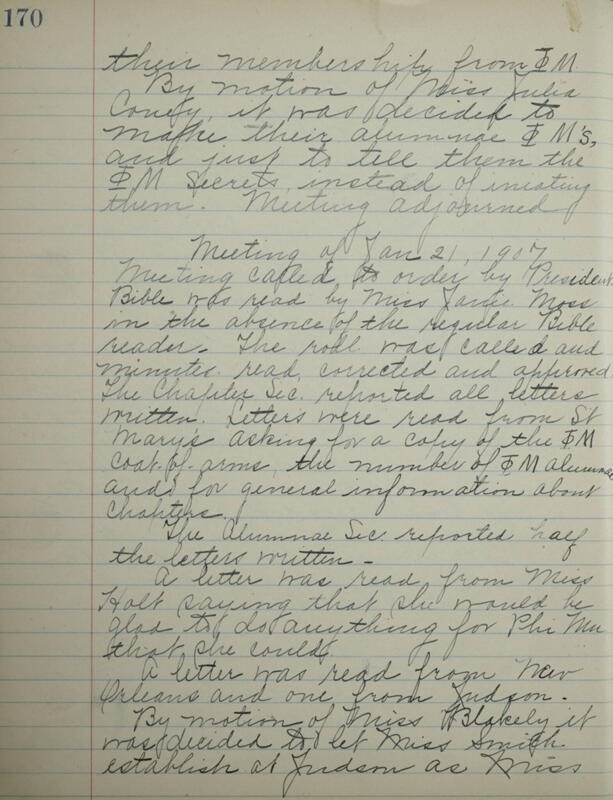 170
their membership from ΦM
By motion of Miss Julia
Coney, it was decided to
make their alumnae ΦM's,
and just to tell them the
ΦM Secrets, instead of iniating
them. Meeting adjourned
Meeting of Jan 21, 1907
Meeting called to order by President.
Bible was read by Miss Janie Moss
in the absence of the regular Bible
reader. The roll was called and
minutes read, corrected and approved
The Chapter Sec. reported all letters
written. Letters were read from St
Marys asking for a copy of the ΦM
coat-of-arms, the number of ΦM alumnae
and for general information about
Chapters.
The Alumnae Sec. reported half
the letters written -
A letter was read from Miss
Holt saying that she would be
glad to do anything for Phi Mu
that she could.
A letter was read from New
Orleans and one from Judson -
By motion of Miss Blakely it
was decided to let Miss Smith
establish at Judson as Miss